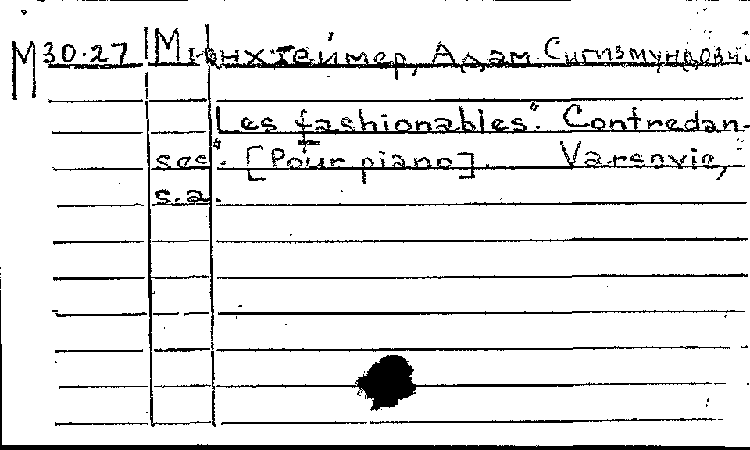 М 30.27 Мюнхгеймер, Адам Сигизмундови
"Les fashionables". Contredan-
ses". [Pour piano]. Varsovie,
s.a.